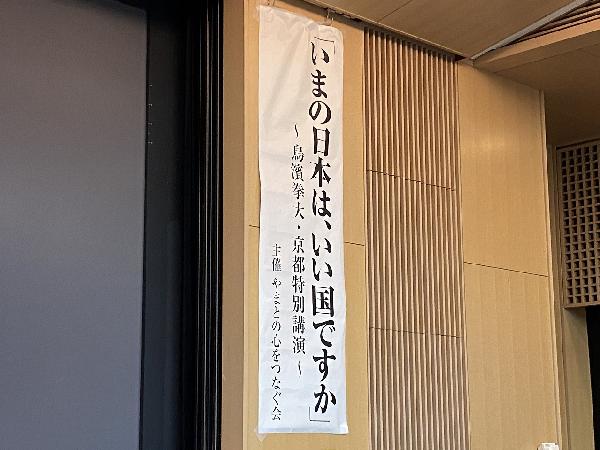 「いまの日本は、いい国ですか」
～鳥濱拳大・京都特別講演～
主催 やまとの心をつなぐ会